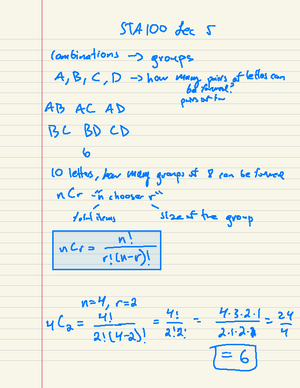 STA100 Lec 5
combinations → groups
A, B, C, D → how many pairs of letters can
be formed?
AB AC AD
BC BD CD
6
10 letters, how many groups of 8 can be formed
nCr "n chooser r"
total items size of the group
nCr = n! / r!(n-r)!
n=4, r=2
4C2 = 4! / 2!(4-2)! = 4! / 2!2! = 4·3·2·1 / 2·1·2·1 = 24 / 4
= 6